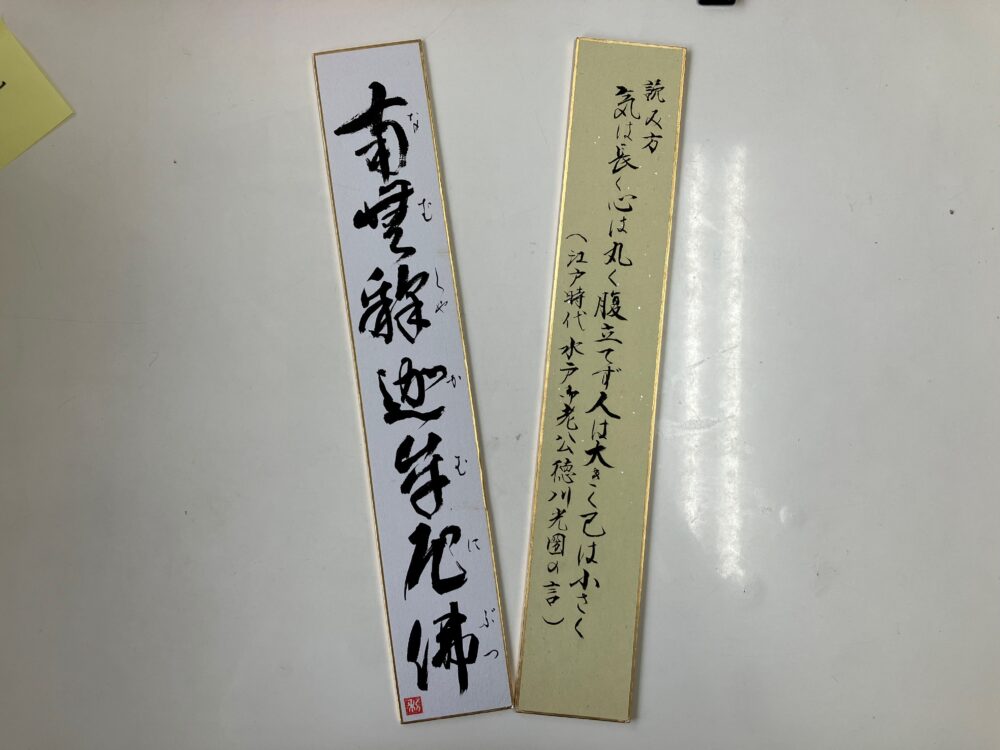 南無釋迦牟尼佛
なむしゃかむにぶつ
読み方
気は長く心は丸く腹立てず人は大きく己は小さく
(江戸時代 水戸御老公徳川光圀の言)